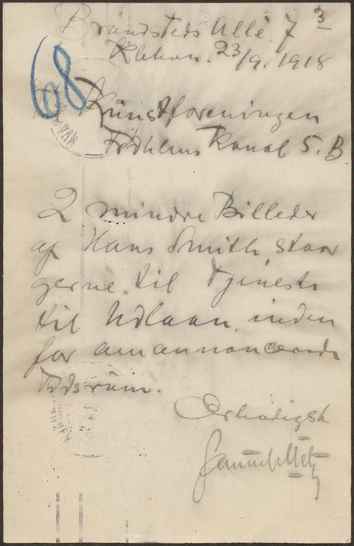 Brøndsteds Allé 7 3
Kbhvn. 23/9. 1918
68
Kunstforeningen
Kanal 5. B
2 mindre Billeder
af Hans Smith, staar
gerne til Tjeneste
til Udlaan inden
for am annoncerede
Tidsrum.
Ærbødigst